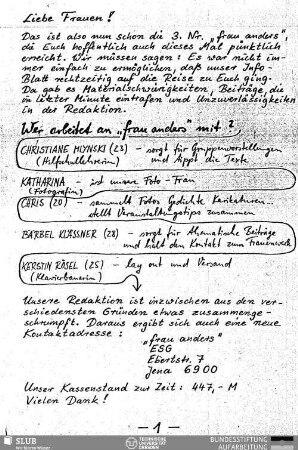 Liebe Frauen!
Das ist also nun schon die 3. Nr. "frau anders",
die Euch hoffentlich auch dieses Mal pünktlich
erreicht. Wir müssen sagen: Es war nicht im-
mer einfach zu ermöglichen, daß unser Info-
Blatt rechtzeitig auf die Reise zu Euch ging.
Da gab es Materialschwierigkeiten, Beiträge, die
in letzter Minute eintrafen und Unzuverlässigkeiten
in der Redaktion.
Wer arbeitet an "frau anders" mit?
CHRISTIANE (23) - sorgt für Gruppenvorstellungen
(Hilfsschullehrerin) und tippt die Texte
KATHARINA - ist unsere Foto-Frau
(Fotografin)
CHRIS (20) - sammelt Fotos Gedichte Karikaturen
stellt Veranstaltungstips zusammen
BÄRBEL KLÄSSNER (28) - sorgt für thematische Beiträge
und hält den Kontakt zum
KERSTIN RÖSEL (25) - lay out und Versand
(Klavierbauerin)
Unsere Redaktion ist inzwischen aus den ver-
schiedensten Gründen etwas zusammenge-
schrumpft. Daraus ergibt sich auch eine neue
Kontaktadresse:
"frau anders"
ESG
Ebertstr. 7
Jena 6900
Unser Kassenstand zur Zeit: 447,- M
Vielen Dank!
- 1 -
SLUB
Wir führen Wissen.
TECHNISCHE
UNIVERSITÄT
DRESDEN
BUNDESSTIFTUNG
AUFARBEITUNG